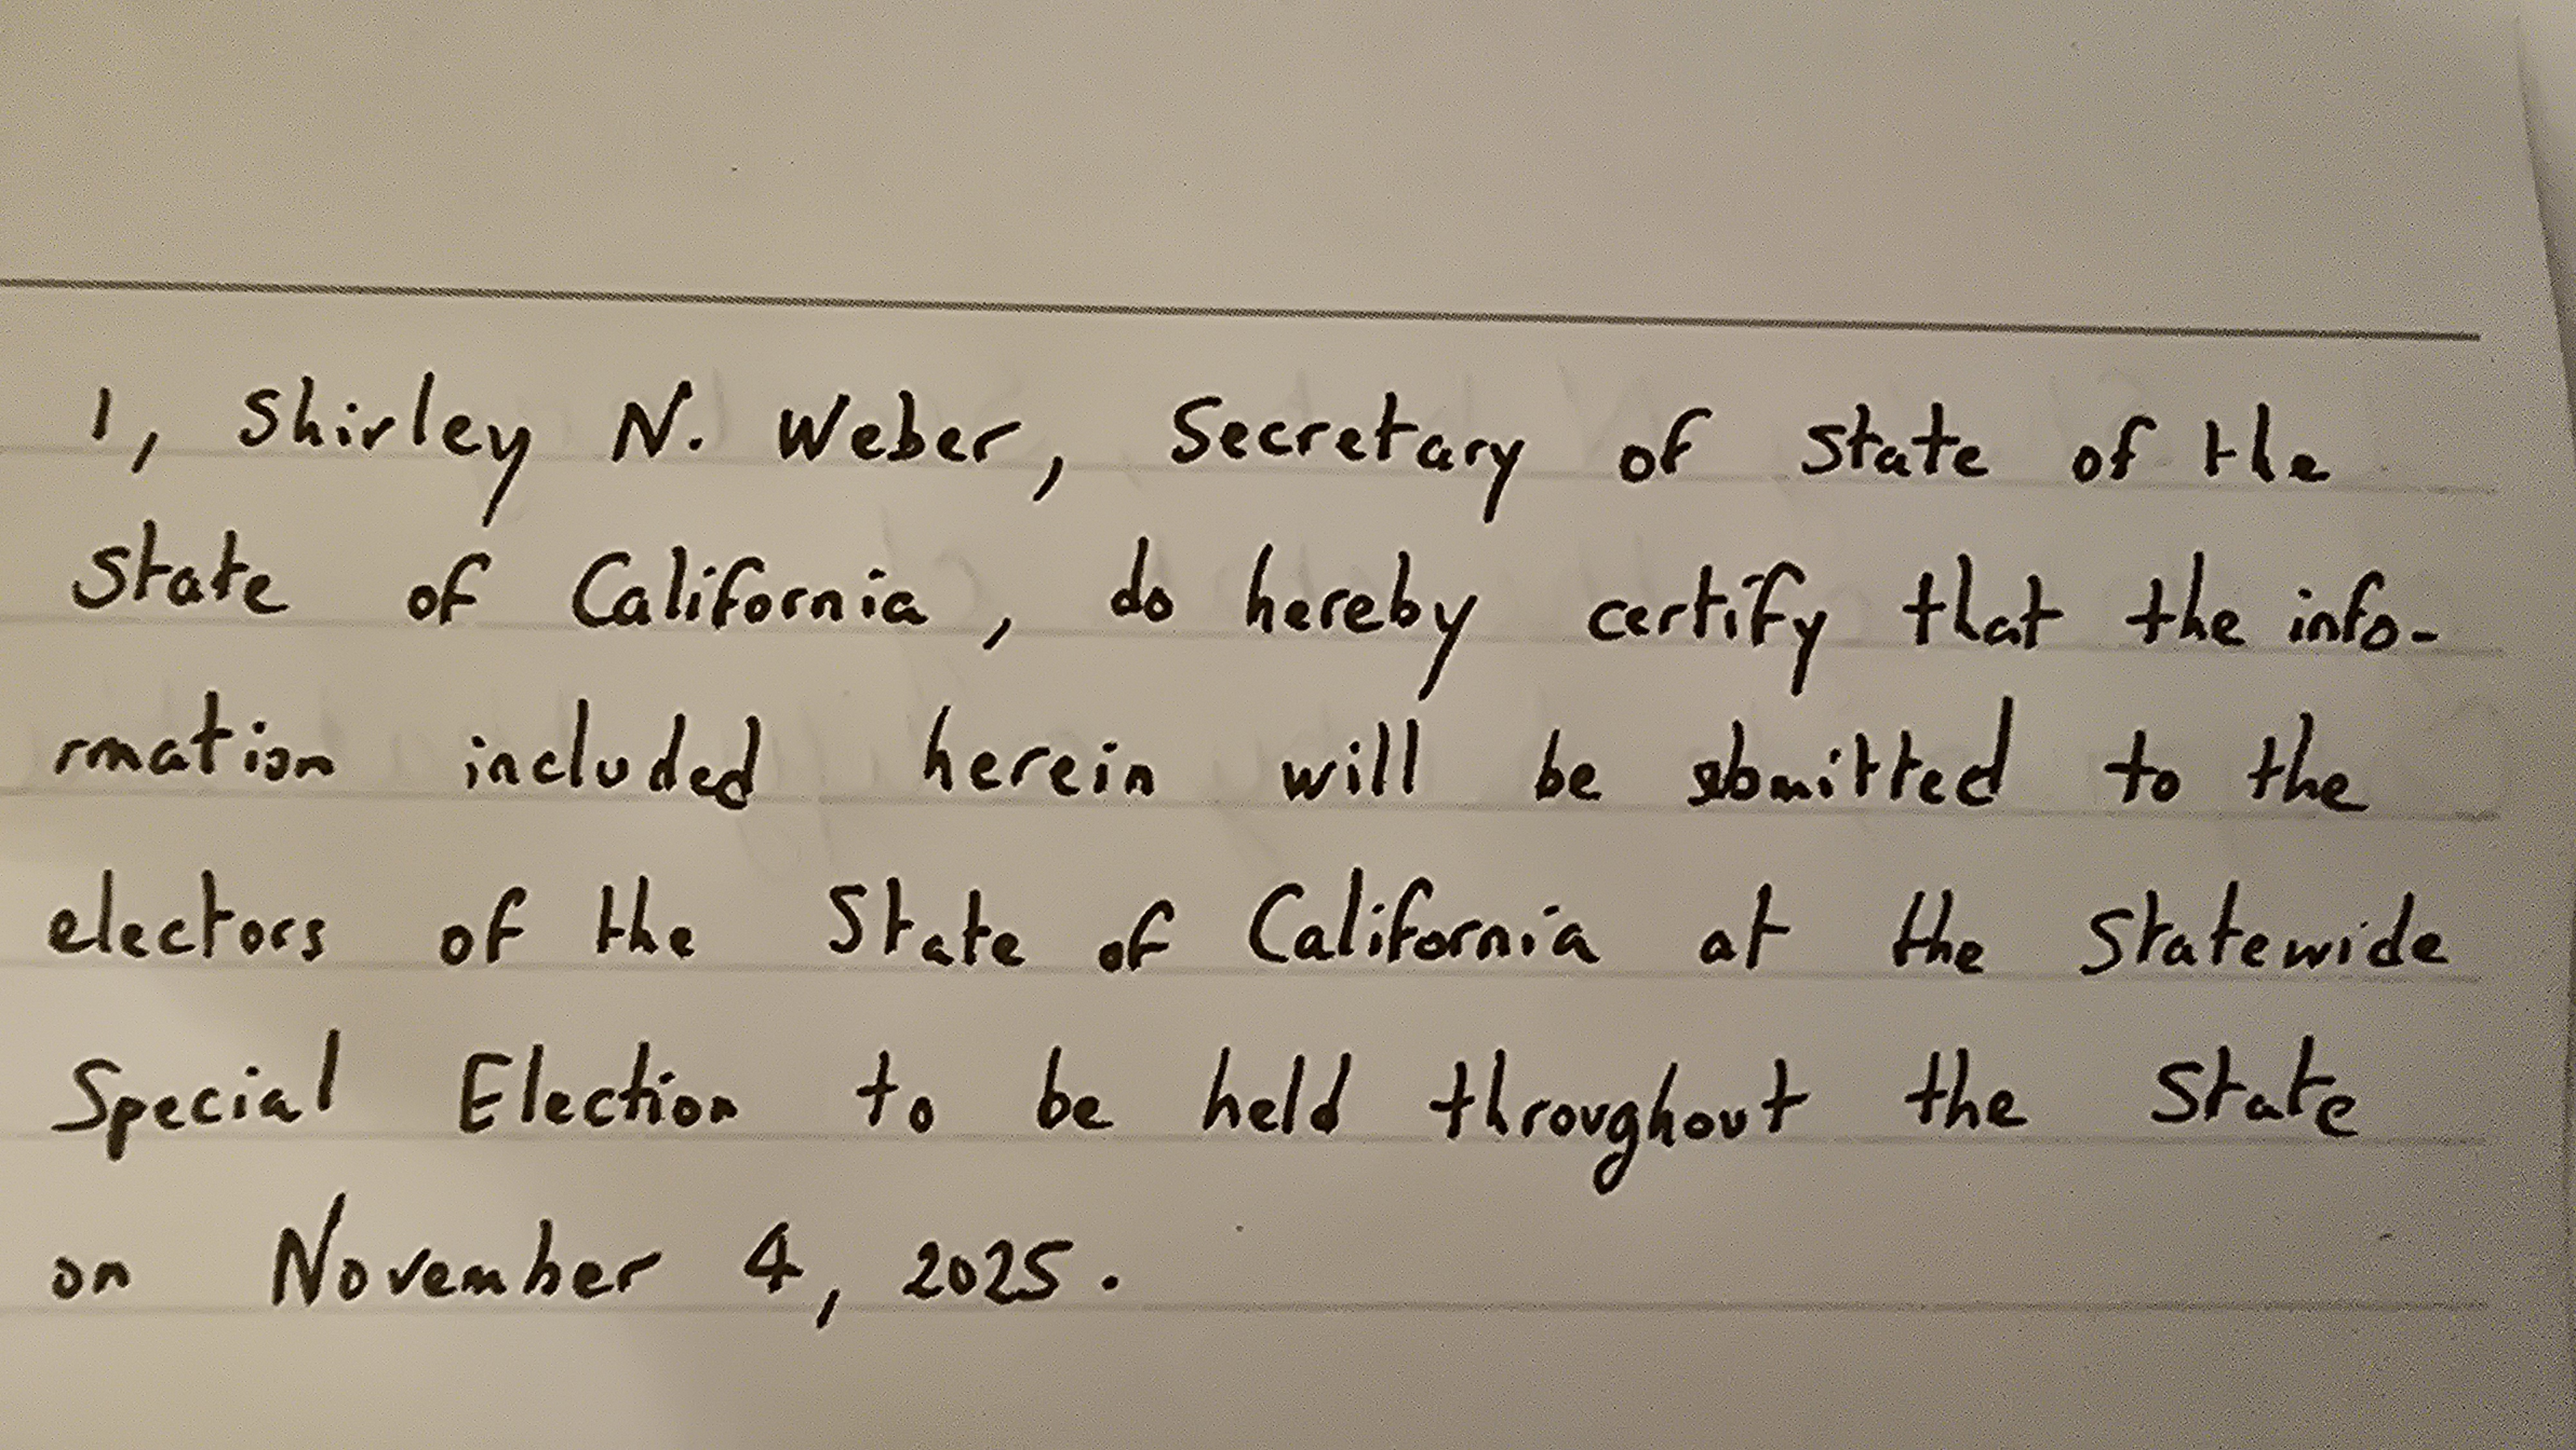 I, Shirley N. Weber, Secretary of State of the
State of California, do hereby certify that the info-
rmation included herein will be sbmitted to the
electors of the State of California at the Statewide
Special Election to be held throughout the State
on November 4, 2025.